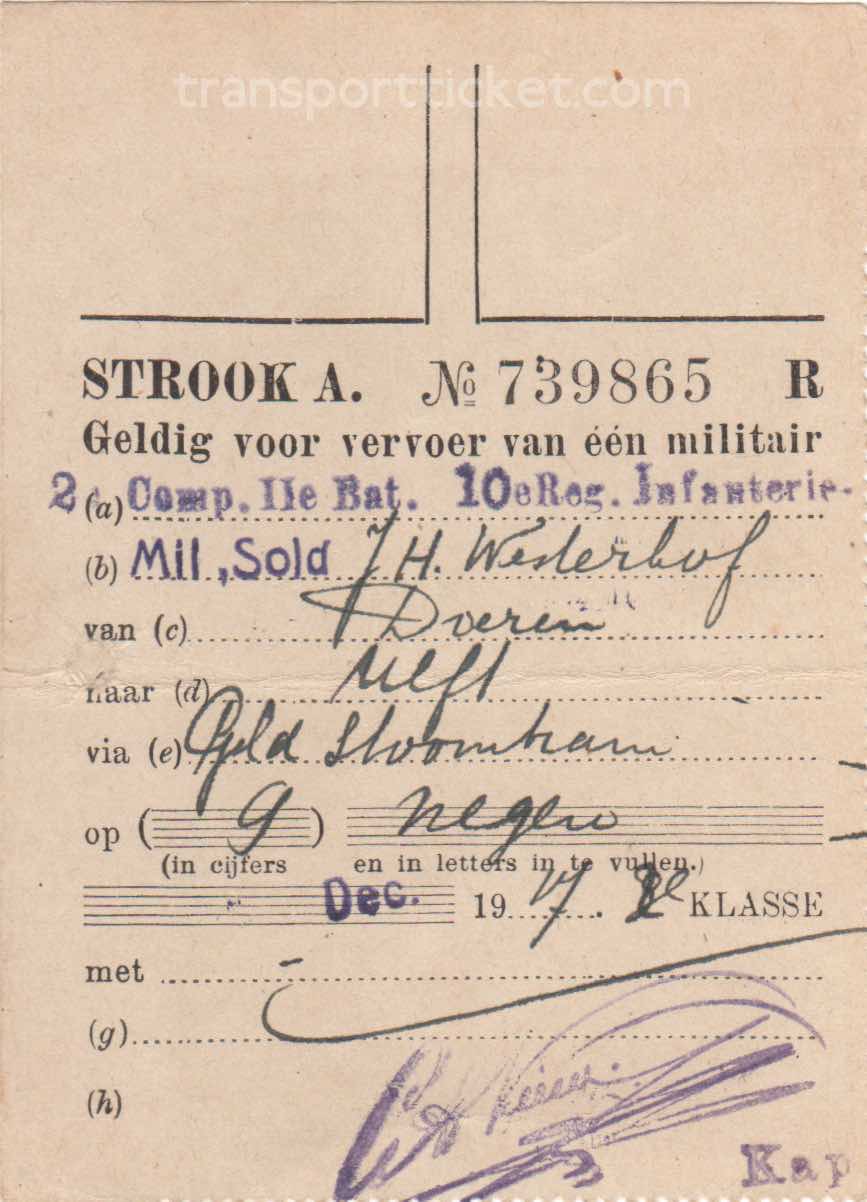 transportticket.com
STROOK A. № 739865 R
Geldig voor vervoer van één militair
2e (a) Comp. IIe Bat. 10e Reg. Infanterie.
(b) Mil, Sold J H. Westerhof
van (c) Doeren
naar (d) Ulft
via (e) Geld Stoomtram
op (9) negen
(in cijfers en in letters in te vullen.)
Dec. 1917. KLASSE
met -
(g)
(h)
Kap